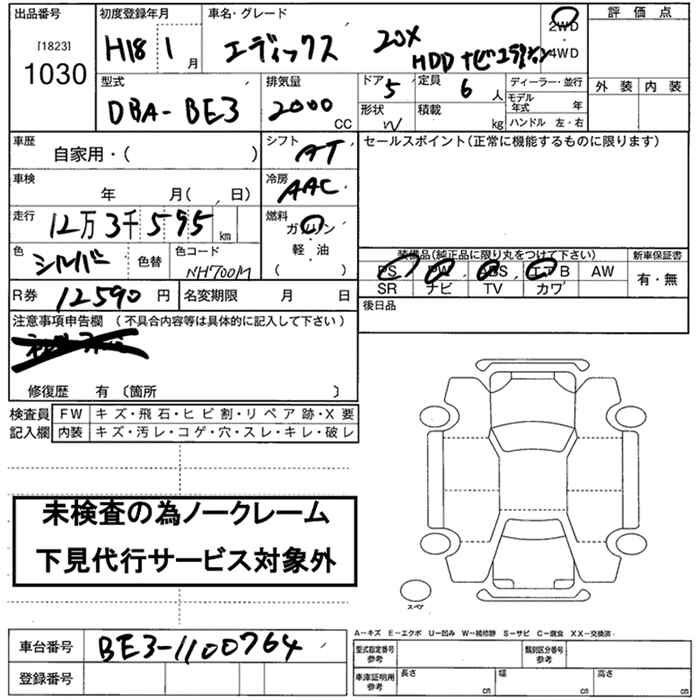 出品番号 初度登録年月 車名・グレード 評価点
[1823]
1030
H18 1 月
エディックス 20X
HDDナビエディション
2WD
・
4WD
外装 内装
型式 排気量 ドア 定員 ディーラー・並行
DBA-BE3 2000 CC
5 6 人
モデル年式 年
形状 積載 kg ハンドル 左・右
車歴 自家用・( )
シフト AT
セールスポイント(正常に機能するものに限ります)
車検 年 月( 、 日)
冷房 AAC
走行 12万3千595 km
燃料 ガソリン
・
軽・油
( )
色 シルバー 色替 色コード NH700M
装備品(純正品に限り丸をつけて下さい) 新車保証書
PS PW ABS エアB AW 有・無
SR ナビ TV カワ
R券 12590 円 名変期限 月 日
後日品
注意事項申告欄 (不具合内容等は具体的に記入して下さい)
修復歴 有 〔箇所 〕
検査員 FW キズ・飛石・ヒビ割・リペア跡・X要
記入欄 内装 キズ・汚レ・コゲ・穴・スレ・キレ・破レ
未検査の為ノークレーム
下見代行サービス対象外
スペア
A-キズ E-エクボ U-凹み W-補修跡 S-サビ C-腐食 XX-交換済
車台番号 BE3-1100764
型式指定番号 参考 類別区分番号 参考
登録番号
車庫証明用 参考 長さ cm 幅 cm 高さ cm